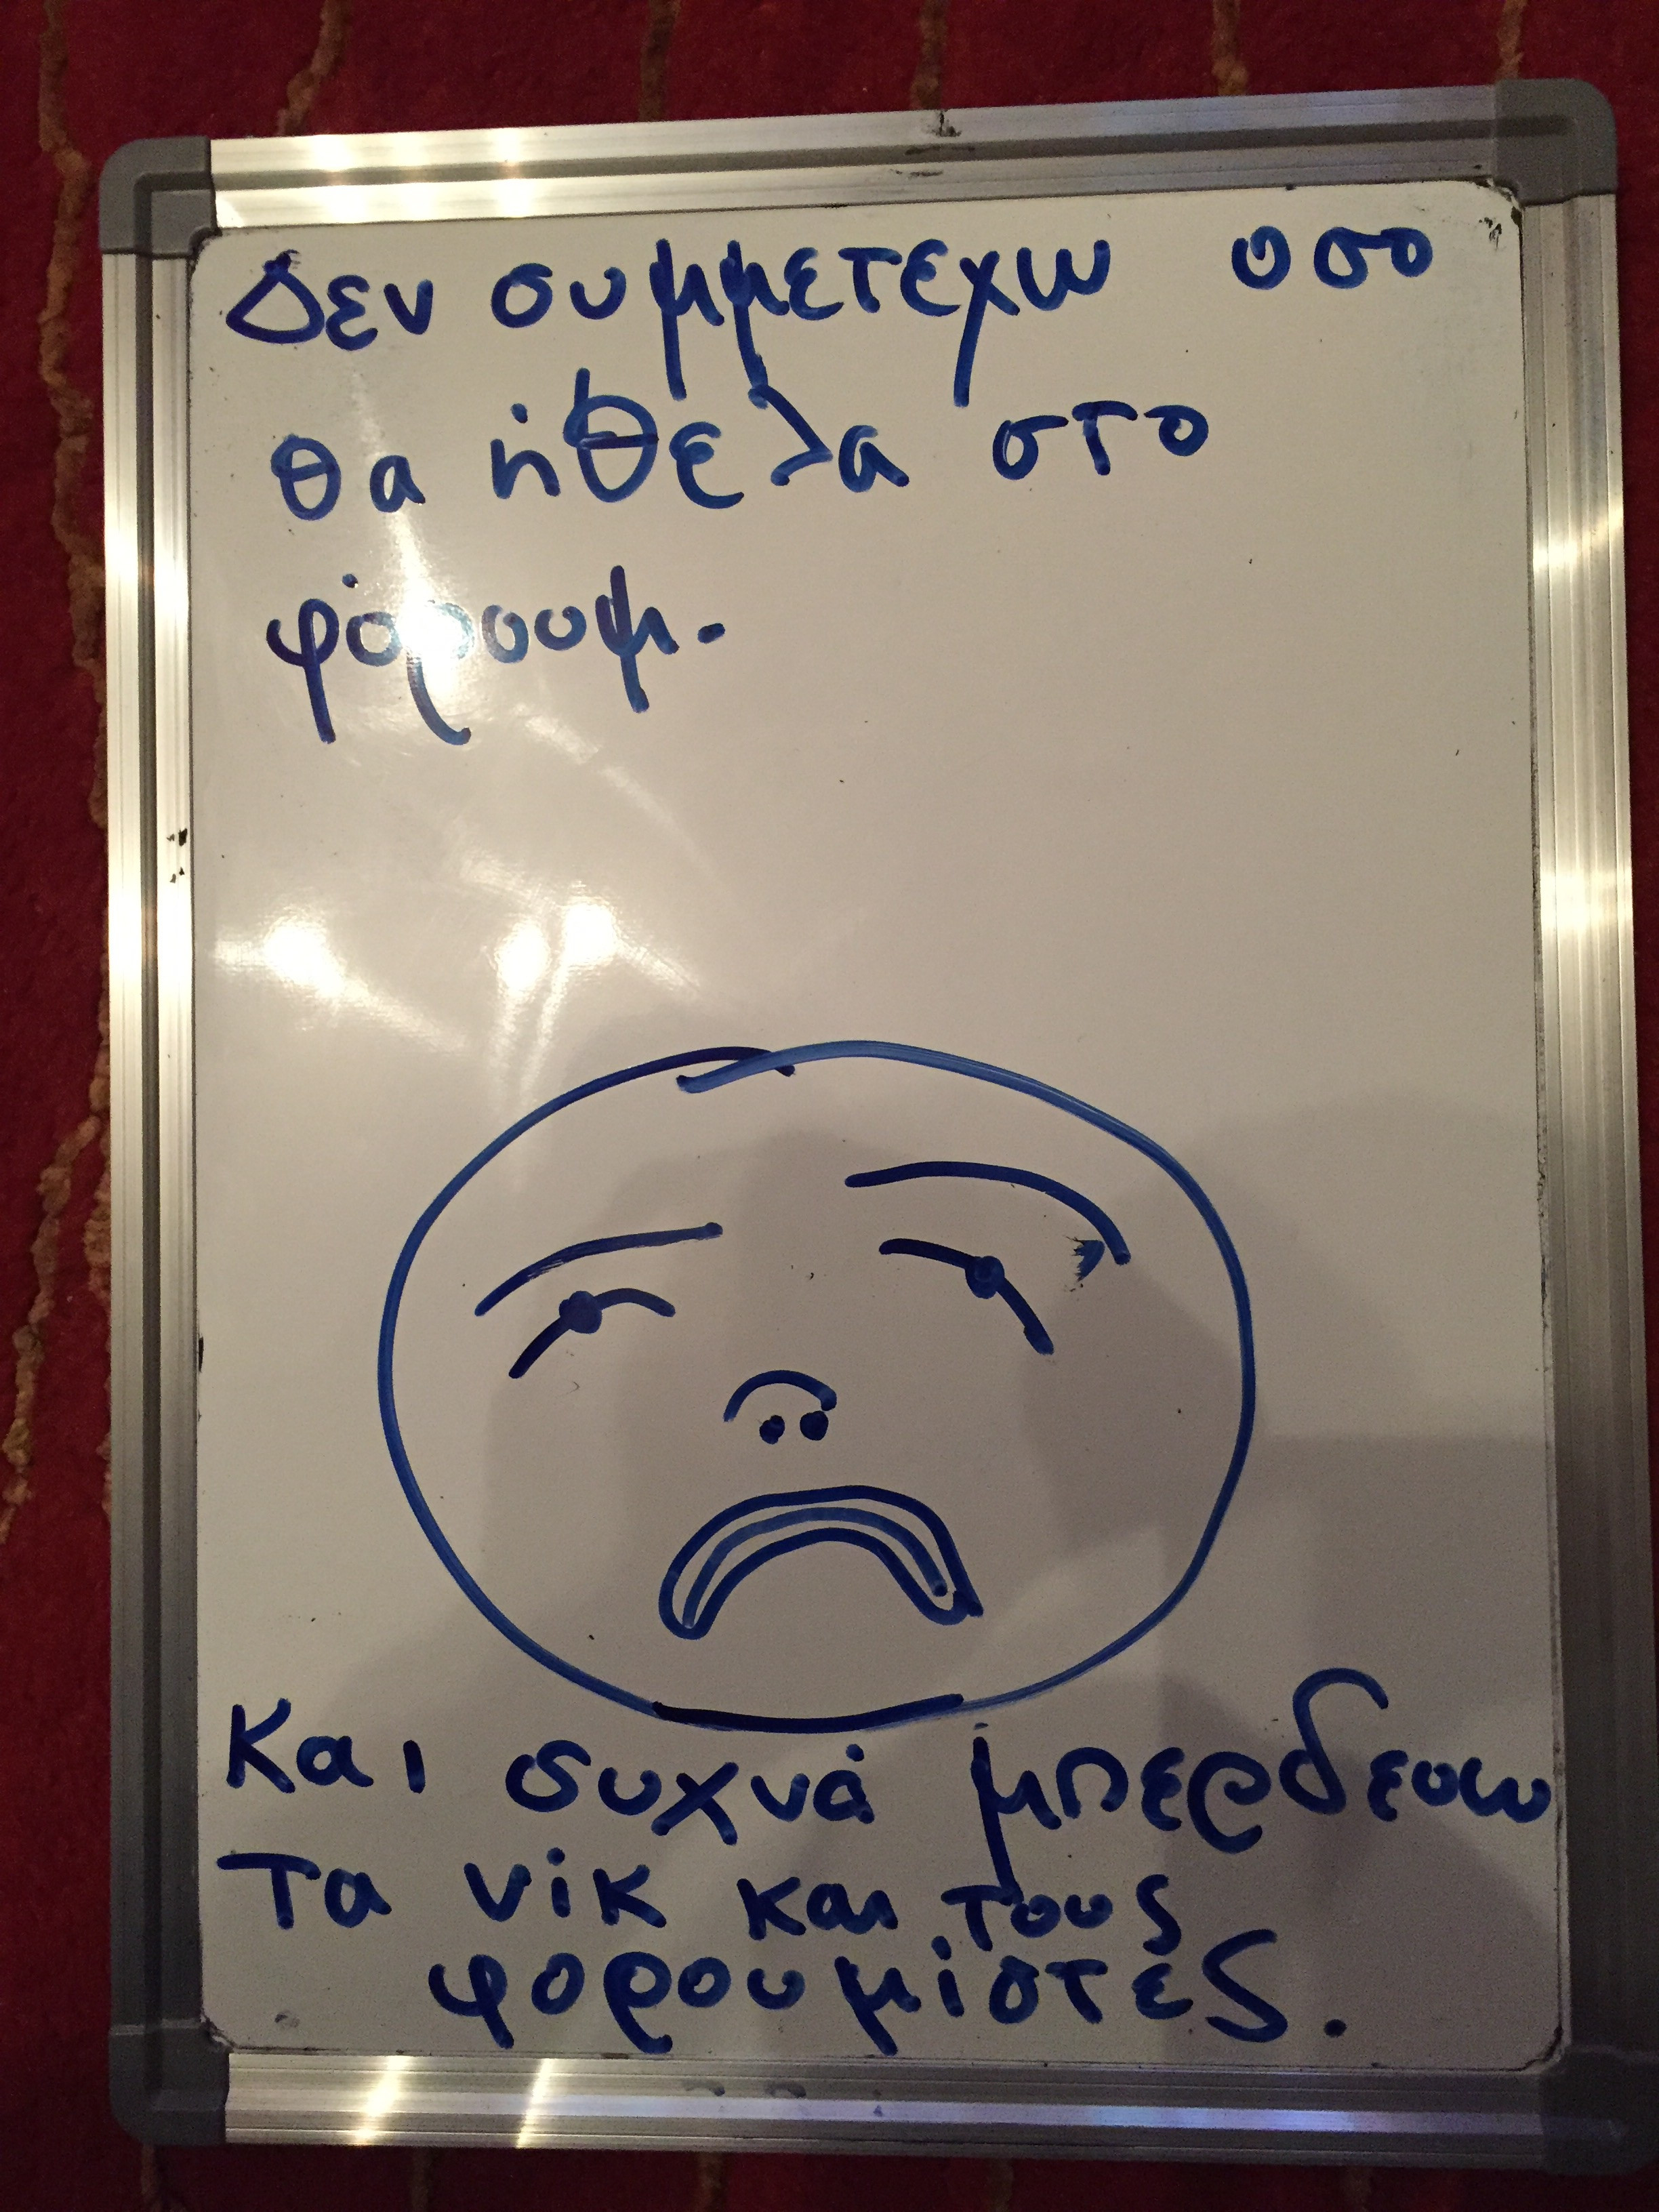 Δεν συμμετεχω οσο
θα ήθελα στο
φόρουμ.
Και συχνά μπερδευω
τα νίκ και τους
φορουμίστες.